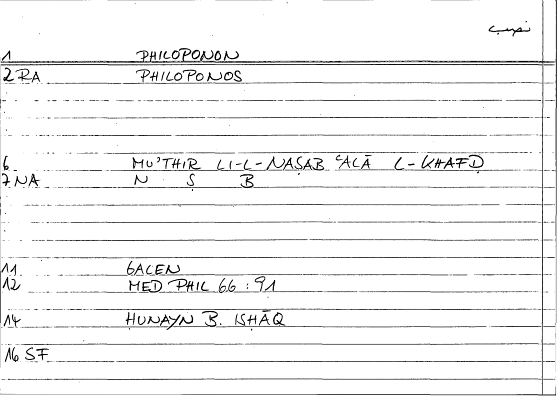 نصب
1 PHILOPONON
2 RA PHILOPONOS
6 MU'THIR LI-L-NAṢAB ʿALĀ L-KHAFḌ
7 NA N Ṣ B
11 GALEN
12 MED PHIL 66 : 91
14 ḤUNAYN B. ISḤĀQ
16 SF